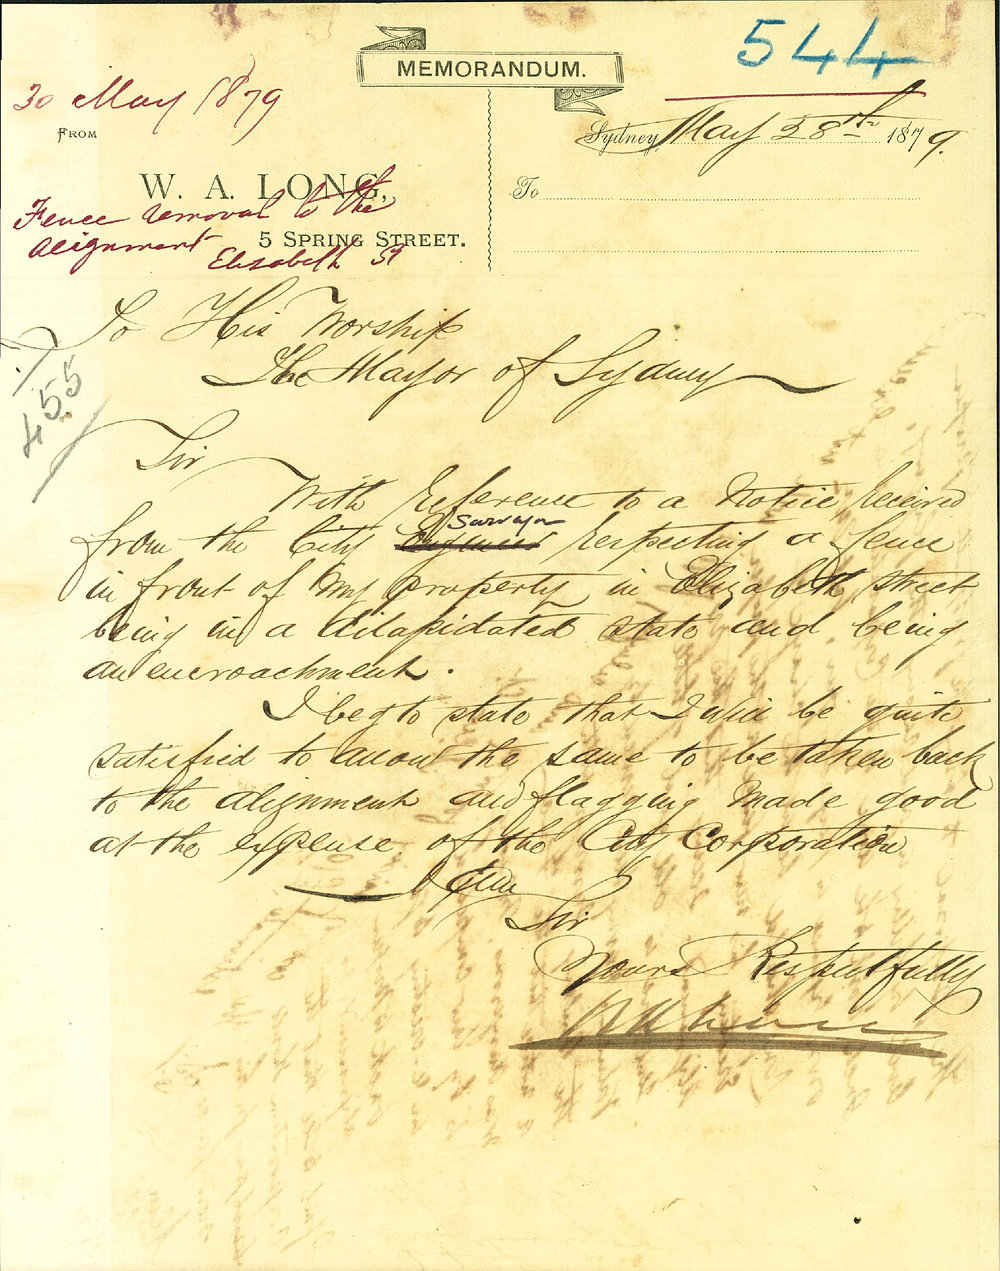 MEMORANDUM.
544
30 May 1879
FROM
Sydney, May 28th 1879.
W. A. LONG,
To
Fence removal to the
alignment
5 SPRING STREET.
Elizabeth St
To His Worship
The Mayor of Sydney
455
Sir
With reference to a Notice received
Surveyor
from the City Engineer respecting a fence
in front of my property in Elizabeth Street
being in a dilapidated state and being
an encroachment.
I beg to state that I will be quite
satisfied to allow the same to be taken back
to the alignment and flagging made good
at the expense of the City Corporation
I am
Sir
Yours Respectfully
W A Long